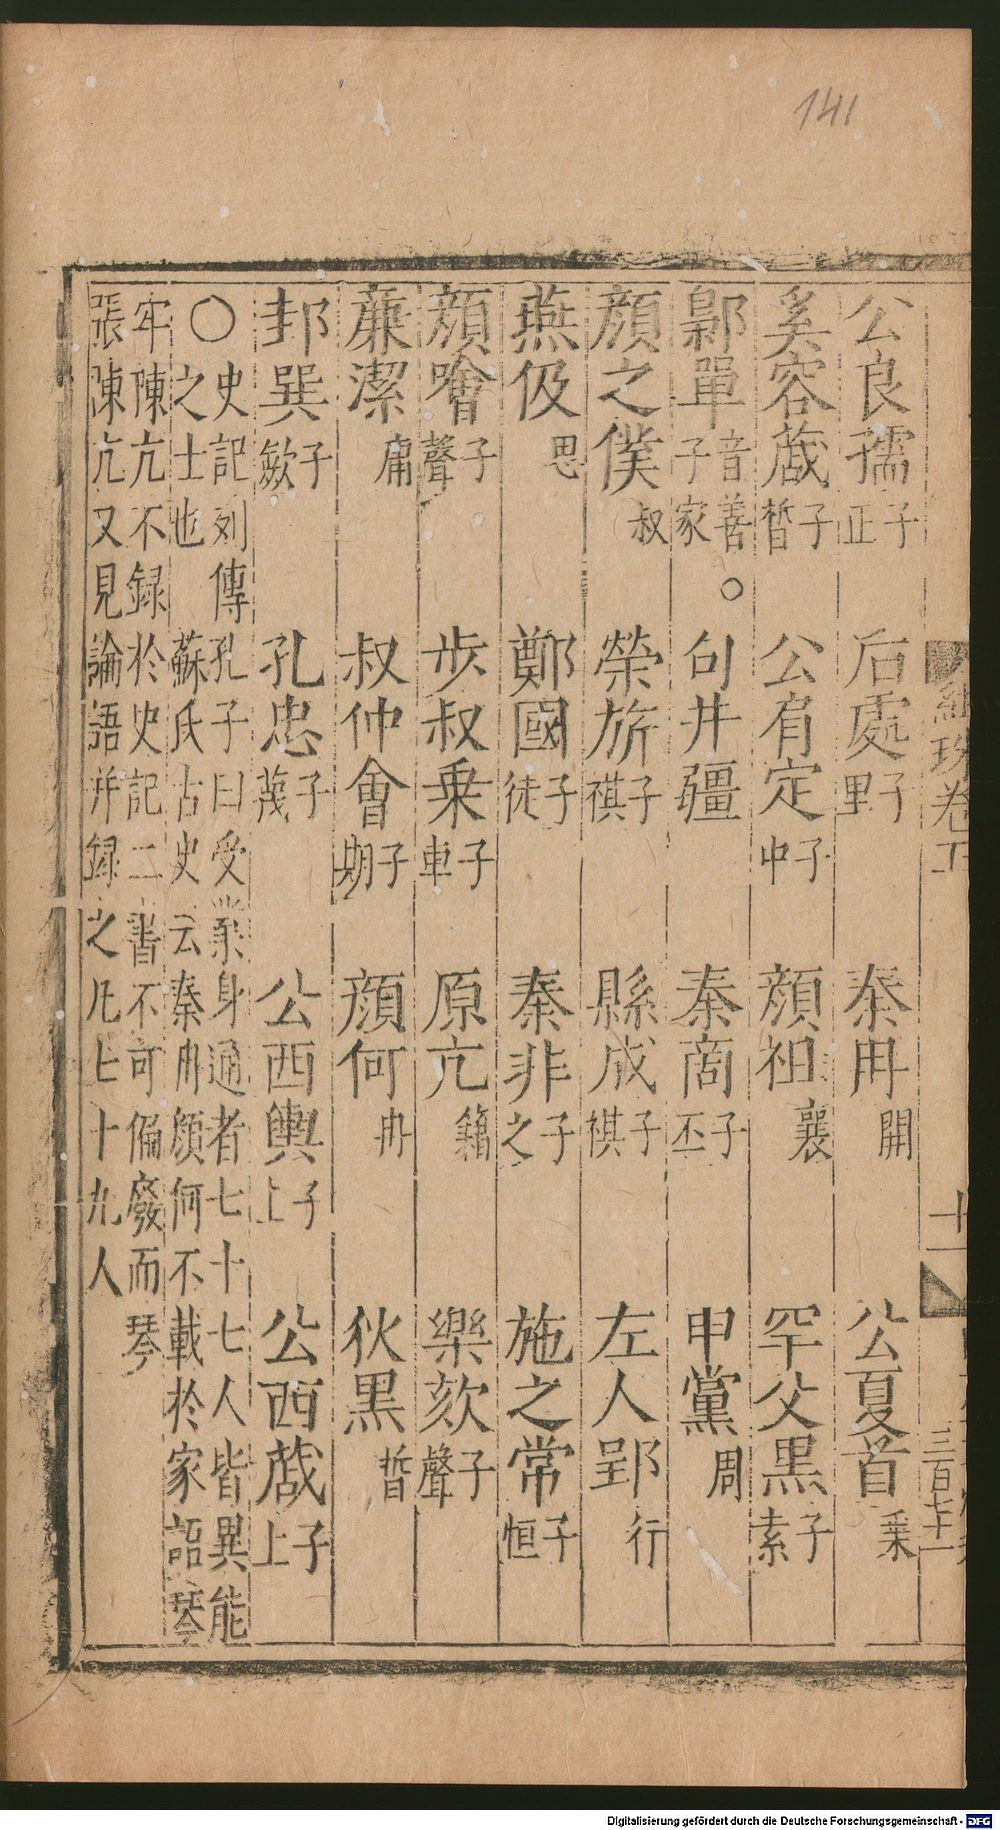 141
公良孺子正 后處子野 秦冉開 公夏首乗
奚容蒧子晳 公肩定子中 顔祖襄 罕父黑子素
鄡單音善。子家 句井疆 秦商子丕 申黨周
顔之僕叔 榮旂子祺 縣成子祺 左人郢行
燕伋思 鄭國子徒 秦非子之 施之常子恒
顔噲子聲 步叔乗子車 原亢籍 樂欬子聲
蔴潔庸 叔仲會子期 顔何冉 狄黑晳
邦巽子斂 孔忠子蔑 公西輿子上 公西蒧子上
〇史記列傳孔子曰受業身通者七十七人皆異能
之士也蘇氏古史云秦冉顔何不載於家語琴
牢陳亢不録於史記二書不可偏廢而琴
張陳亢又見論語并録之凡七十九人
珠卷下
十一
三百七十一
Digitalisierung gefördert durch die Deutsche Forschungsgemeinschaft - DFG